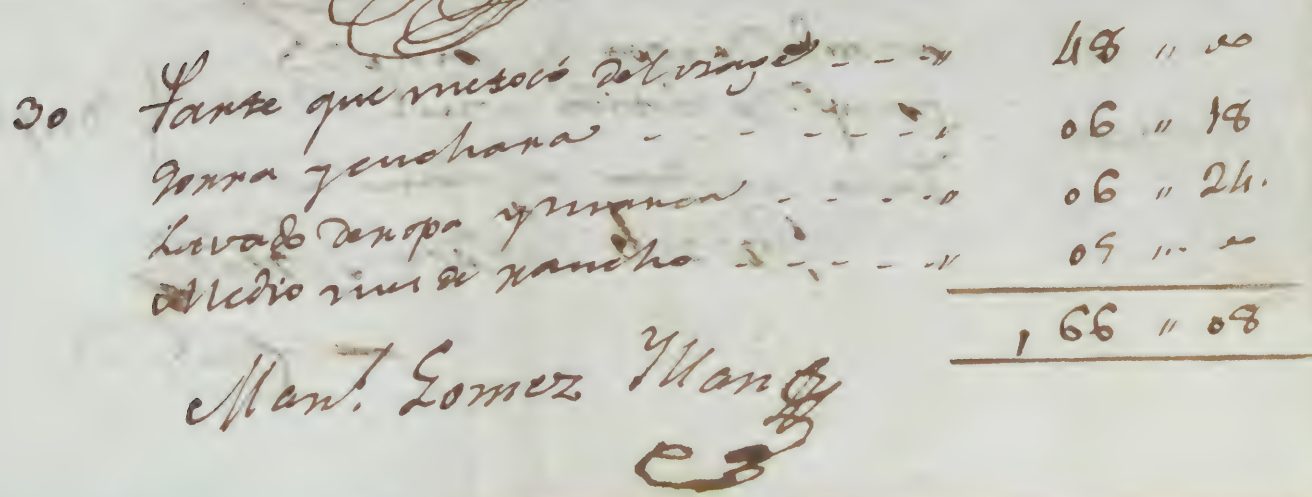 30 Tante que me tocó del viage - - - " 48 " "
gorra y cuchara - - - - - - - " 06 " 18
Lavado de ropa y - - - - " 06 " 24.
Medio mes de rancho - - - - " 05 " "
, 66 " 08
Man.l Gomez